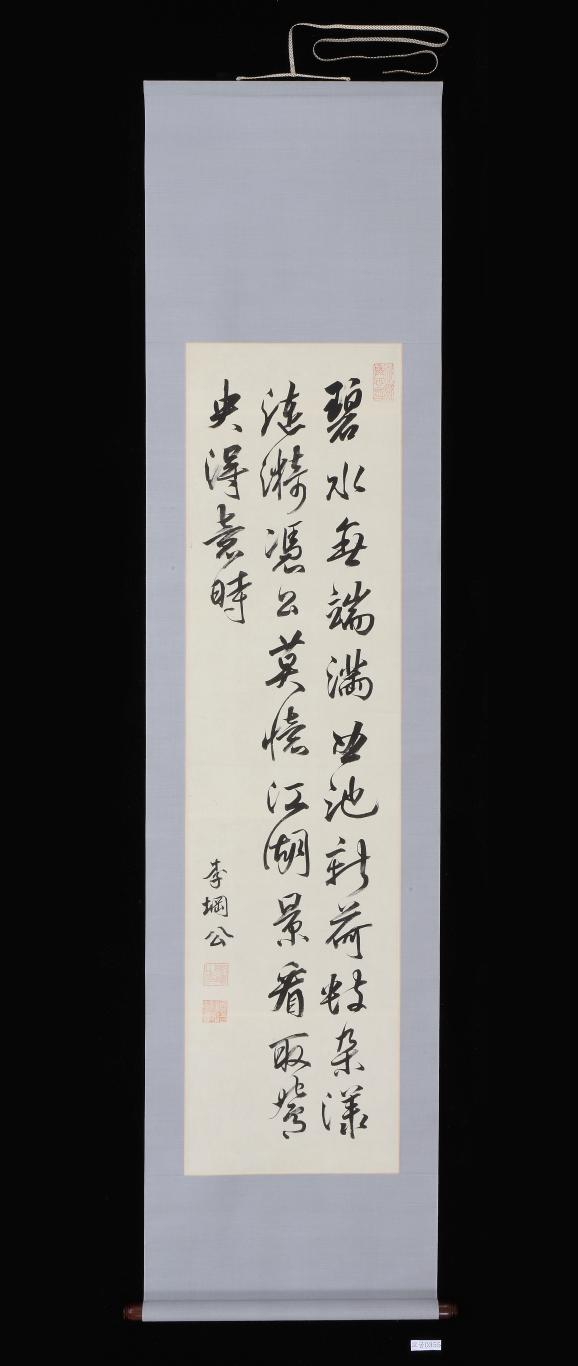 碧水無端滿曲池新荷數朶漾
漣漪憑公莫憶江湖景看取鴛
央得意時
李堈公